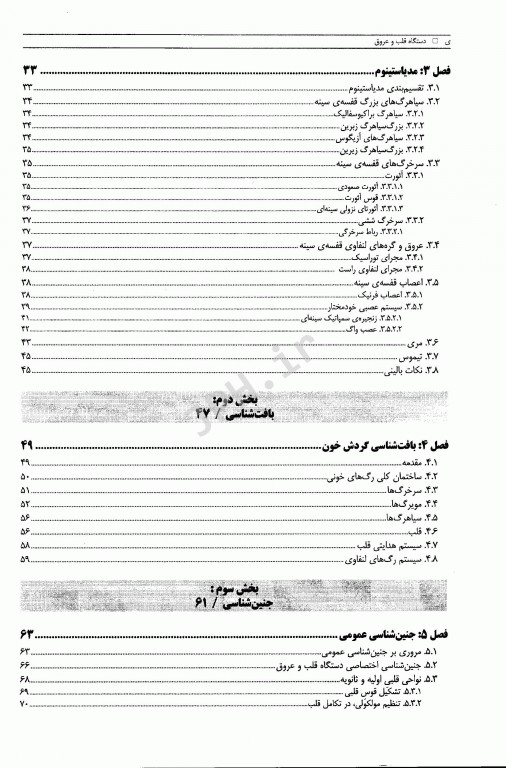 ی □ دستگاه قلب و عروق
فصل ۳: مدیاستینوم ۳۳
۳.۱. تقسیم‌بندی مدیاستینوم ۳۳
۳.۲. سیاهرگ‌های بزرگ قفسه‌ی سینه ۳۴
۳.۲.۱. سیاهرگ براکیوسفالیک ۳۴
۳.۲.۲. بزرگ‌سیاهرگ زبرین ۳۴
۳.۲.۳. سیاهرگ‌های آزیگوس ۳۴
۳.۲.۴. بزرگ‌سیاهرگ زیرین ۳۵
۳.۳. سرخرگ‌های قفسه‌ی سینه ۳۵
۳.۳.۱. آئورت ۳۵
۳.۳.۱.۱. آئورت صعودی ۳۵
۳.۳.۱.۲. قوس آئورت ۳۵
۳.۳.۱.۳. آئورتای نزولی سینه‌ای ۳۶
۳.۳.۲. سرخرگ ششی ۳۷
۳.۳.۲.۱. رباط سرخرگی ۳۷
۳.۴. عروق و گره‌های لنفاوی قفسه‌ی سینه ۳۷
۳.۴.۱. مجرای توراسیک ۳۷
۳.۴.۲. مجرای لنفاوی راست ۳۸
۳.۵. اعصاب قفسه‌ی سینه ۳۸
۳.۵.۱. اعصاب فرنیک ۳۸
۳.۵.۲. سیستم عصبی خودمختار ۳۹
۳.۵.۲.۱. زنجیره‌ی سمپاتیک سینه‌ای ۴۱
۳.۵.۲.۲. عصب واگ ۴۲
۳.۶. مری ۴۳
۳.۷. تیموس ۴۵
۳.۸. نکات بالینی ۴۵
بخش دوم:
بافت‌شناسی / ۴۷
فصل ۴: بافت‌شناسی گردش خون ۴۹
۴.۱. مقدمه ۴۹
۴.۲. ساختمان کلی رگ‌های خونی ۵۰
۴.۳. سرخرگ‌ها ۵۱
۴.۴. مویرگ‌ها ۵۲
۴.۵. سیاهرگ‌ها ۵۶
۴.۶. قلب ۵۶
۴.۷. سیستم هدایتی قلب ۵۸
۴.۸. سیستم رگ‌های لنفاوی ۵۹
بخش سوم:
جنین‌شناسی / ۶۱
فصل ۵: جنین‌شناسی عمومی ۶۳
۵.۱. مروری بر جنین‌شناسی عمومی ۶۳
۵.۲. جنین‌شناسی اختصاصی دستگاه قلب و عروق ۶۶
۵.۳. نواحی قلبی اولیه و ثانویه ۶۸
۵.۳.۱. تشکیل قوس قلبی ۶۹
۵.۳.۲. تنظیم مولکولی، در تکامل قلب ۷۰